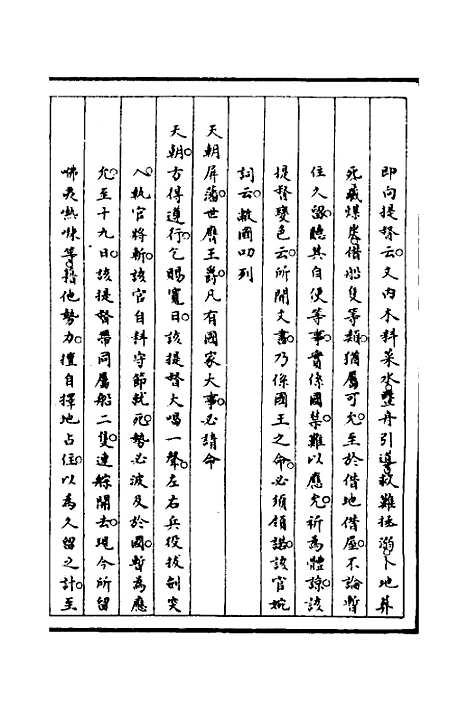 即向提督云文内木料菜水暨舟引導救難拯溺卜地葬
死裝煤炭借船隻等類猶屬可允至於借地借屋不論暫
住久留聽其自便等事實係國禁難以應允祈為體諒該
提督變色云所開文書乃係國王之命必須領諾該官婉
詞云敝國叨列
天朝屏藩世膺王爵凡有國家大事必請命
天朝方得遵行乞賜寬日該提督大喝一聲左右兵役拔劍突
入執官將斬該官自料守節就死勢必波及於國暫為應
允至十九日該提督帶同屬船二隻連䑸開去現今所留
咈夷嘅咪等藉他勢力擅自擇地占住以為久留之計至